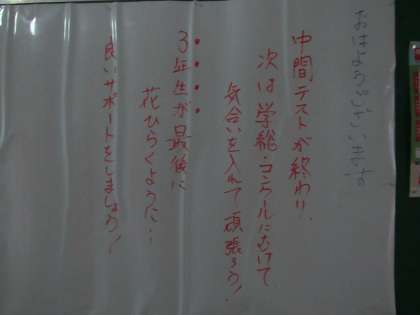 おはようございます
中間テストが終わり、
次は学総・コンクールにむけて
気合いを入れて頑張ろう！
3年生が最後に
花ひらくように！
良いサポートをしましょう！